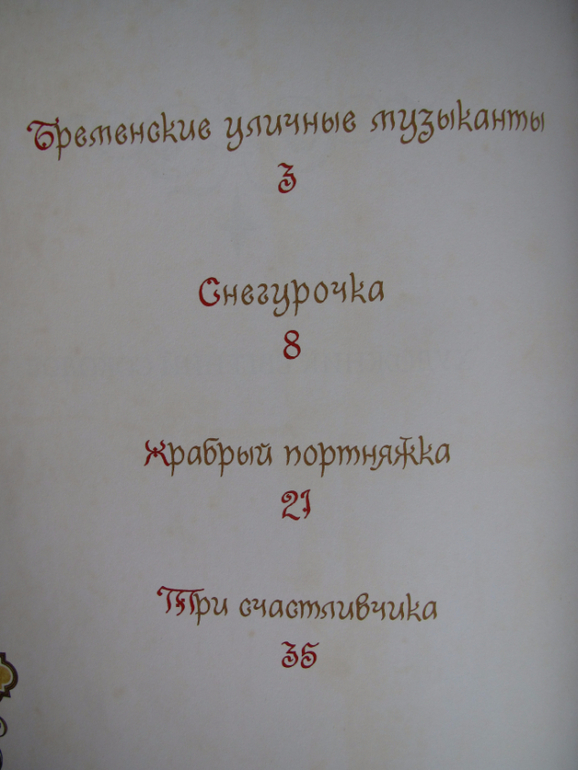 Бременские уличные музыканты
3
Снегурочка
8
Храбрый портняжка
21
Три счастливчика
35